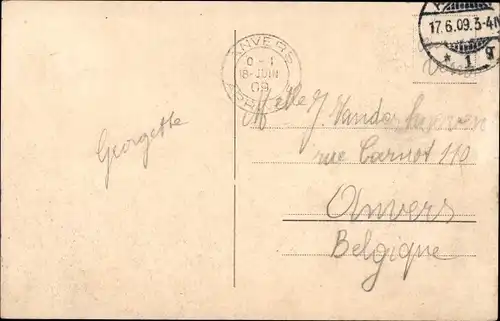 17.6.09.3-4N
* 1 g
ANVERS
0-1
18-JUIN
09
Georgette
Melle J Vander
rue Carnot 110
Anvers
Belgique